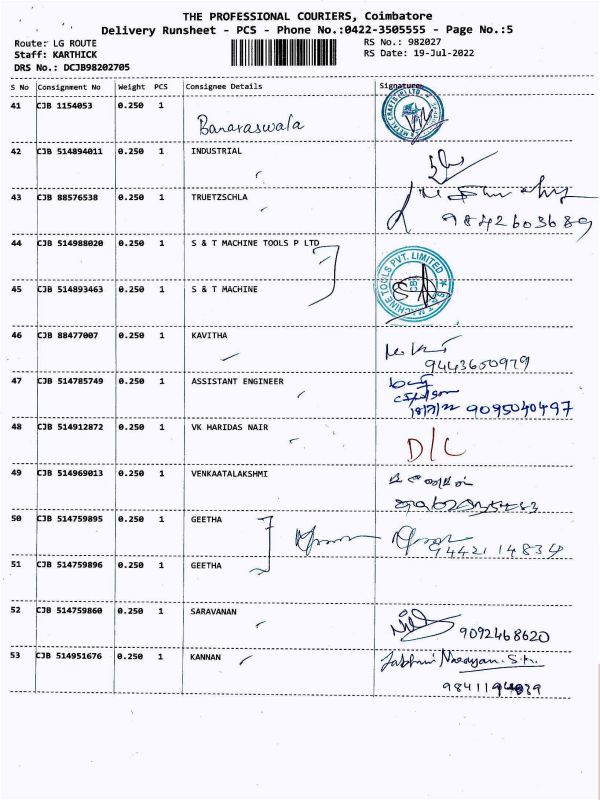 THE PROFESSIONAL COURIERS, Coimbatore
Delivery Runsheet - PCS - Phone No.:0422-3505555 - Page No.:5
Route: LG ROUTE
Staff: KARTHICK
DRS No.: DCJB98202705
RS No.: 982027
RS Date: 19-Jul-2022
S No Consignment No Weight PCS Consignee Details Signature
41 CJB 1154053 0.250 1 Banaraswala
42 CJB 514894011 0.250 1 INDUSTRIAL
43 CJB 88576538 0.250 1 TRUETZSCHLA
9842603689
44 CJB 514988020 0.250 1 S & T MACHINE TOOLS P LTD
45 CJB 514893463 0.250 1 S & T MACHINE
S & T MACHINE TOOLS PVT. LIMITED
46 CJB 88477007 0.250 1 KAVITHA
9443650979
47 CJB 514785749 0.250 1 ASSISTANT ENGINEER
9095040497
48 CJB 514912872 0.250 1 VK HARIDAS NAIR
D/C
49 CJB 514969013 0.250 1 VENKAATALAKSHMI
50 CJB 514759895 0.250 1 GEETHA
9442114834
51 CJB 514759896 0.250 1 GEETHA
52 CJB 514759860 0.250 1 SARAVANAN
9092468620
53 CJB 514951676 0.250 1 KANNAN